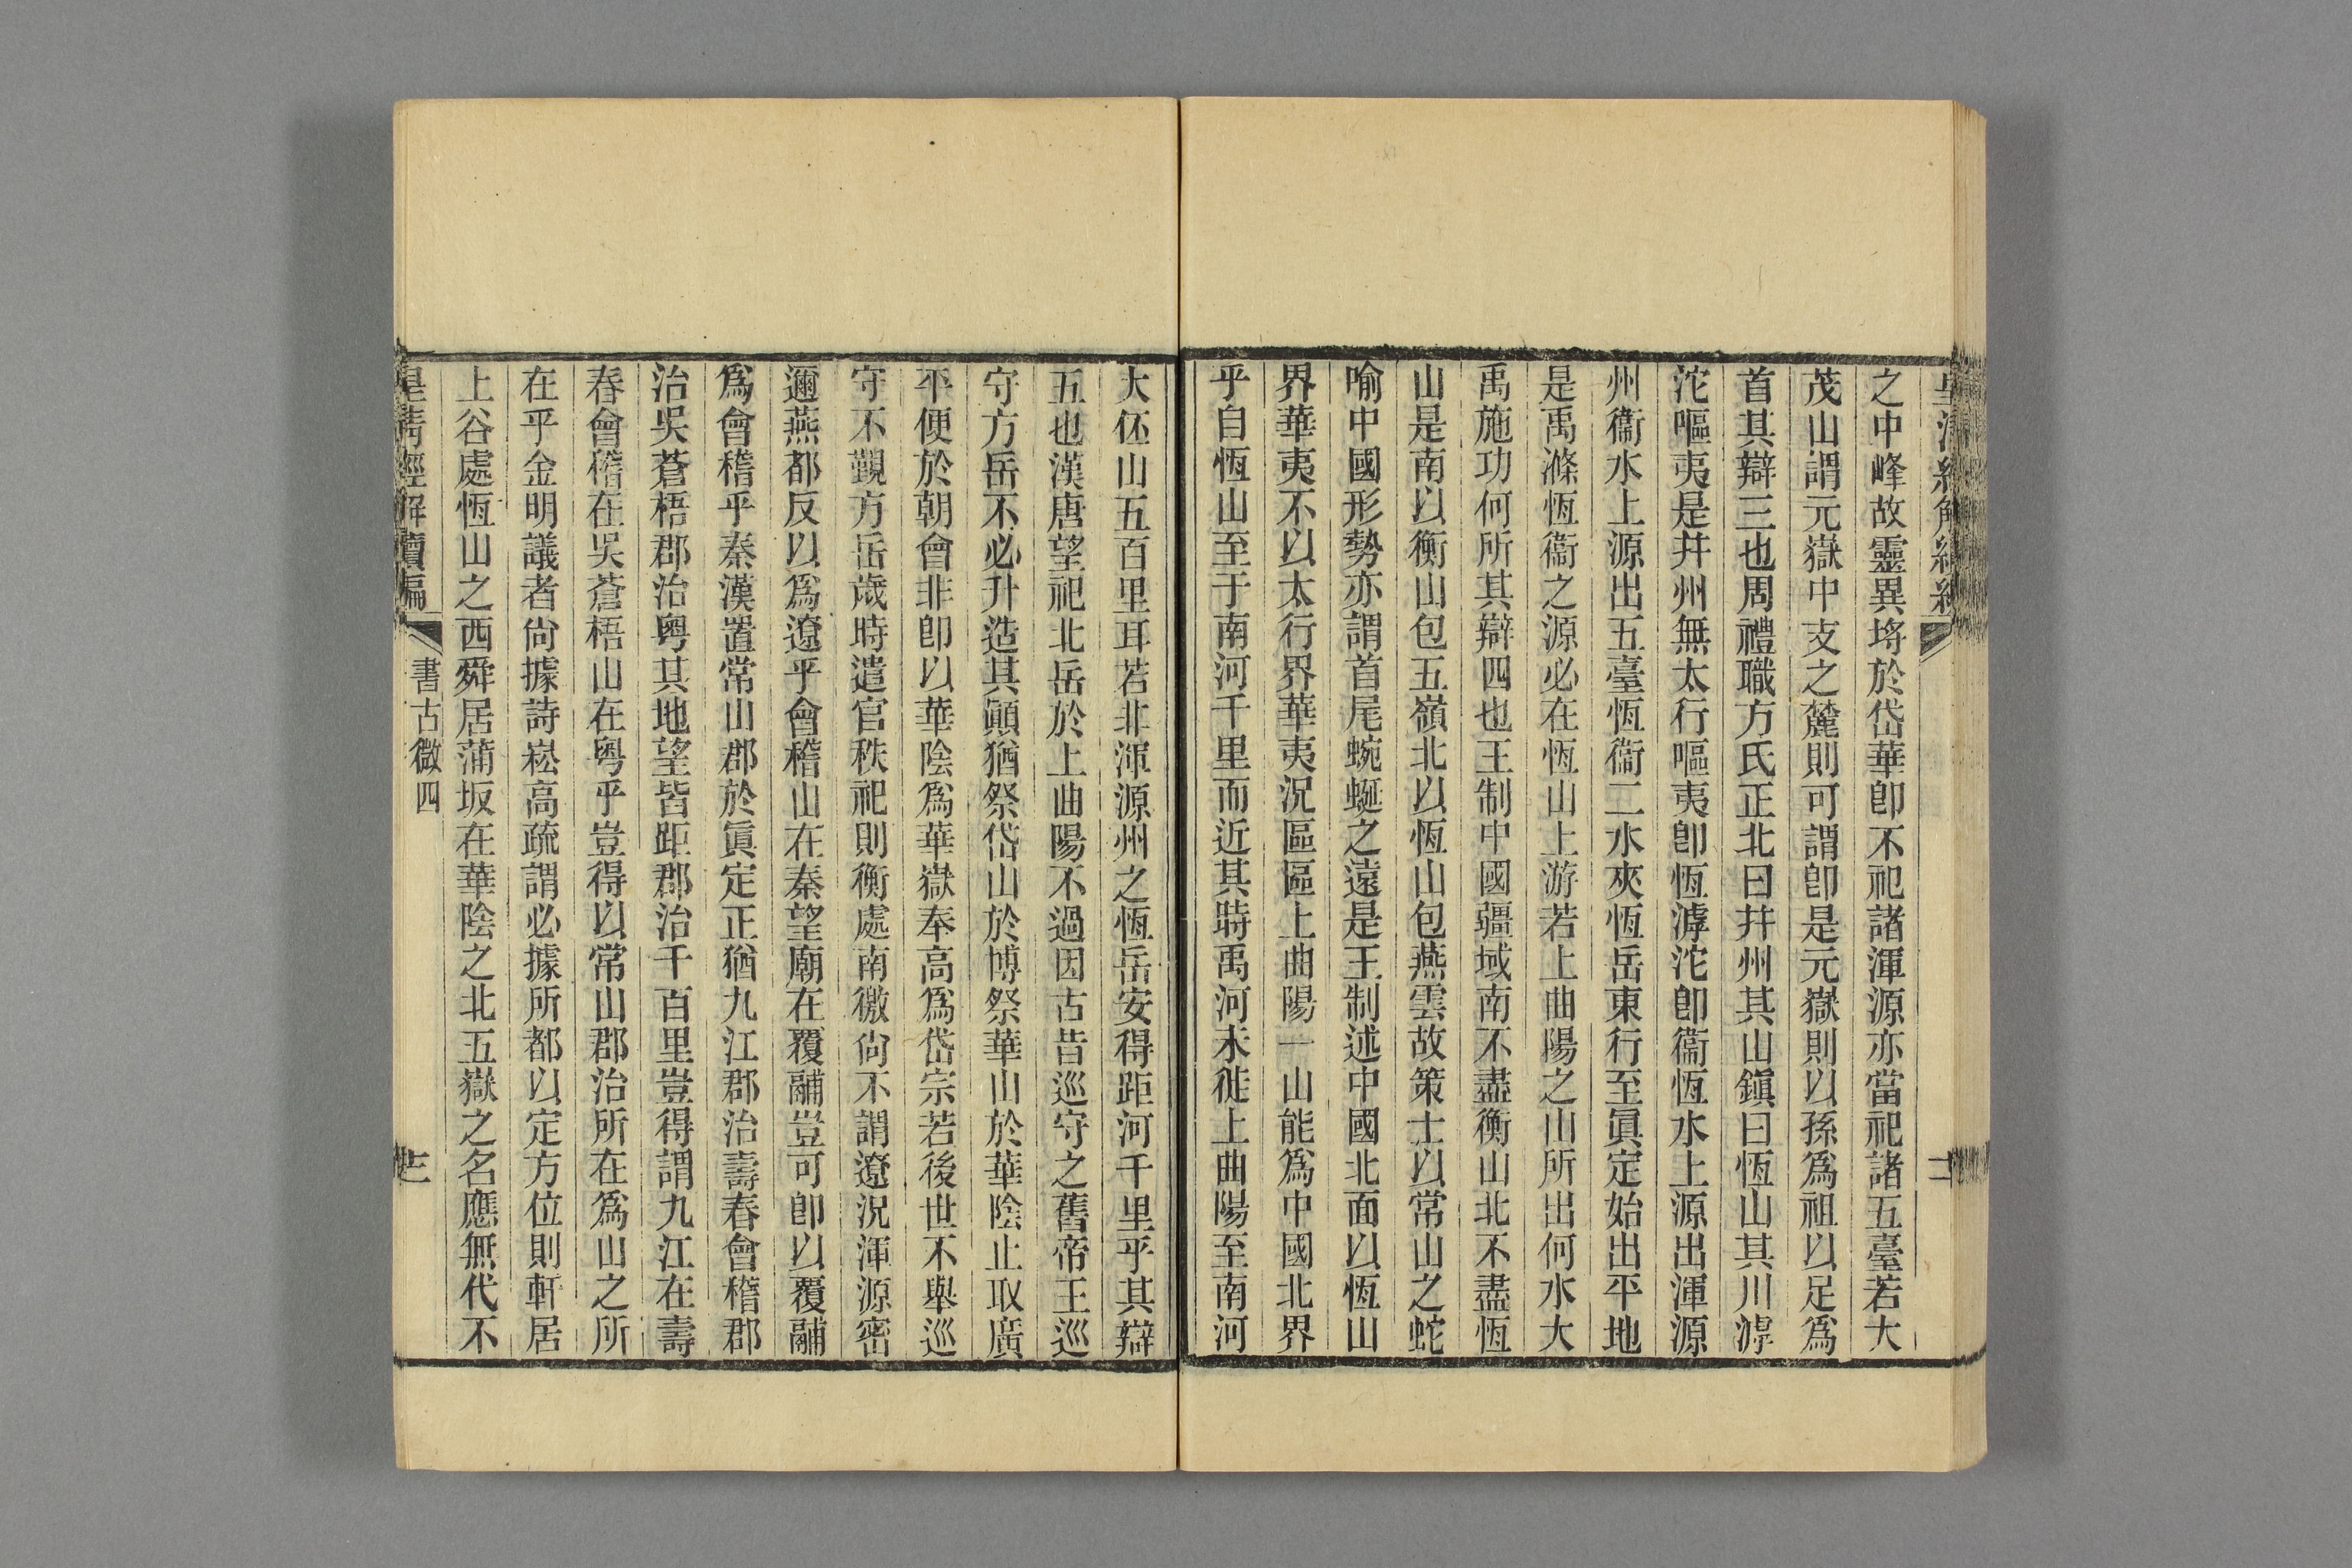 之中峰故靈異埒於岱華卽不祀諸渾源亦當祀諸五臺若大
茂山謂元嶽中支之麓則可謂卽是元嶽則以孫爲祖以足爲
首其辯三也周禮職方氏正北曰幷州其山鎭曰恆山其川滹
沱嘔夷是幷州無太行嘔夷卽恆滹沱卽衞恆水上源出渾源
州衞水上源出五臺恆衞二水夾恆岳東行至眞定始出平地
是禹滌恆衞之源必在恆山上游若上曲陽之山所出何水大
禹施功何所其辯四也王制中國疆域南不盡衡山北不盡恆
山是南以衡山包五嶺北以恆山包燕雲故策士以常山之蛇
喻中國形勢亦謂首尾蜿蜒之遠是王制述中國北面以恆山
界華夷不以太行界華夷況區區上曲陽一山能爲中國北界
乎自恆山至于南河千里而近其時禹河未徙上曲陽至南河
大伾山五百里耳若非渾源州之恆岳安得距河千里乎其辯
五也漢唐望祀北岳於上曲陽不過因古昔巡守之舊帝王巡
守方岳不必升造其顚猶祭岱山於博祭華山於華陰止取廣
平便於朝會非卽以華陰爲華嶽奉高爲岱宗若後世不舉巡
守不覲方岳歲時遣官秩祀則衡處南徼尙不謂遼況渾源密
邇燕都反以爲遼乎會稽山在秦望廟在覆鬴豈可卽以覆鬴
爲會稽乎秦漢置常山郡於眞定正猶九江郡治壽春會稽郡
治吳蒼梧郡治粵其地望皆距郡治千百里豈得謂九江在壽
春會稽在吳蒼梧山在粵乎豈得以常山郡治所在爲山之所
在乎金明議者尙據詩崧高疏謂必據所都以定方位則軒居
上谷處恆山之西舜居蒲坂在華陰之北五嶽之名應無代不
皇淸經解續編
書古微四